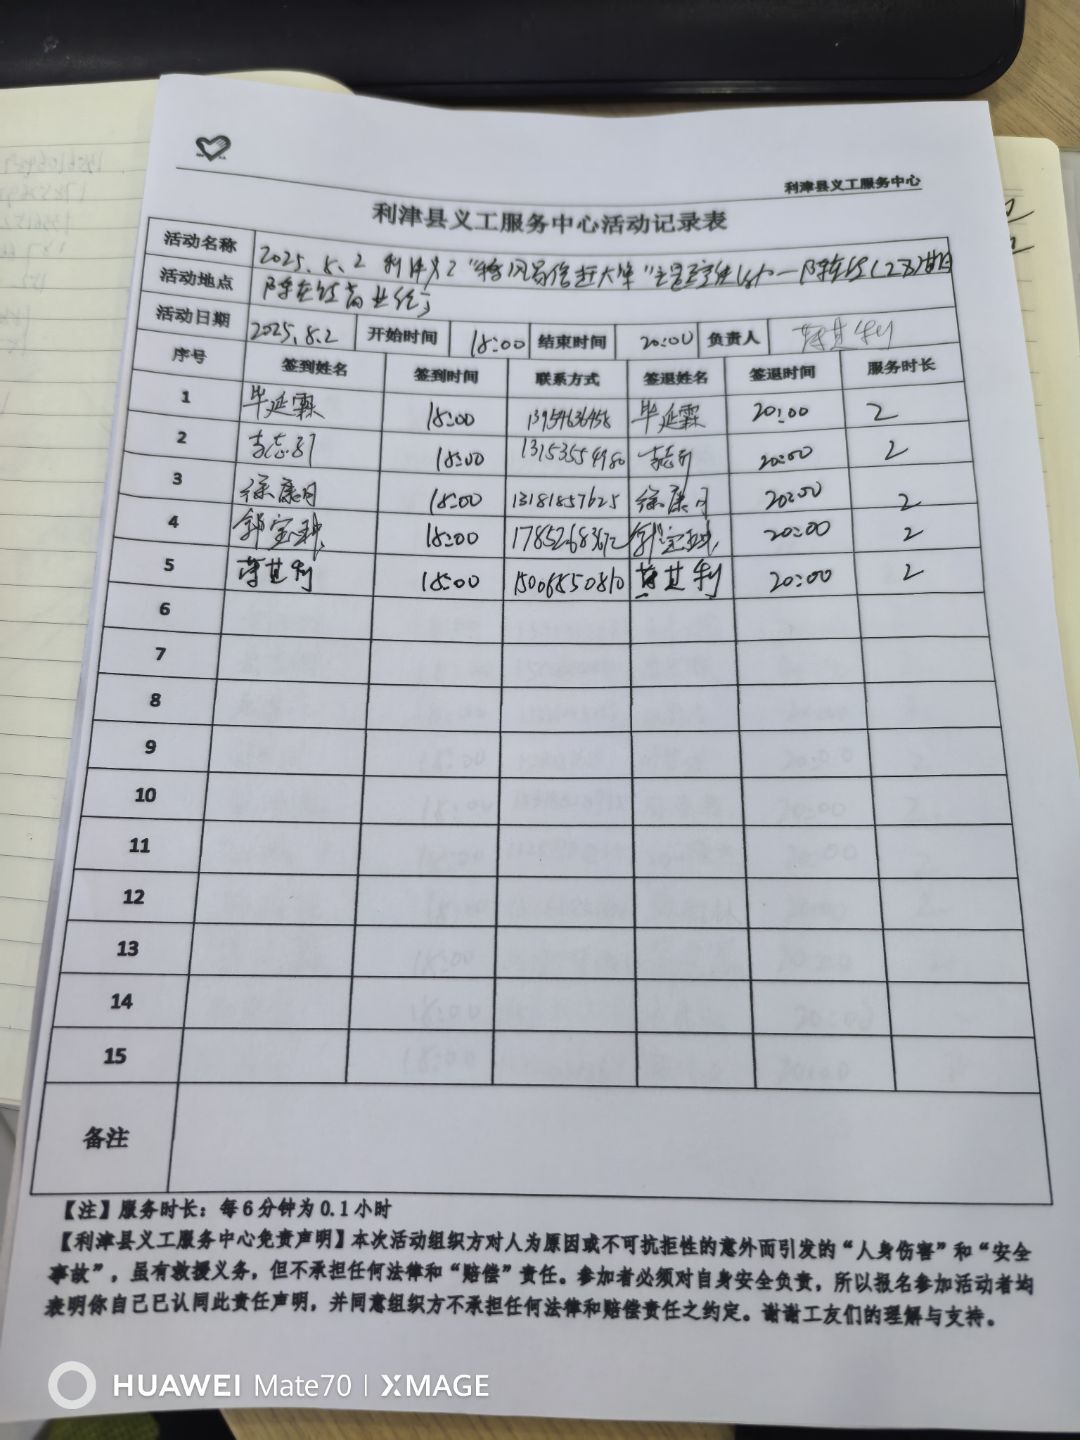 利津县义工服务中心
利津县义工服务中心活动记录表
活动名称 2025.8.2 利津义工
活动地点 陈庄镇商业街
活动日期 2025.8.2 开始时间 18:00 结束时间 20:00 负责人
序号 签到姓名 签到时间 联系方式 签退姓名 签退时间 服务时长
1 毕延霖 18:00 毕延霖 20:00 2
2 18:00 20:00 2
3 徐康月 18:00 13181857625 徐康月 20:00 2
4 郭宝 18:00 郭宝 20:00 2
5 其利 18:00 15006850810 其利 20:00 2
6
7
8
9
10
11
12
13
14
15
备注
【注】服务时长：每6分钟为0.1小时
【利津县义工服务中心免责声明】本次活动组织方对人为原因或不可抗拒性的意外而引发的“人身伤害”和“安全
事故”，虽有救援义务，但不承担任何法律和“赔偿”责任。参加者必须对自身安全负责，所以报名参加活动者均
表明你自己已认同此责任声明，并同意组织方不承担任何法律和赔偿责任之约定。谢谢工友们的理解与支持。
HUAWEI Mate70 | XMAGE